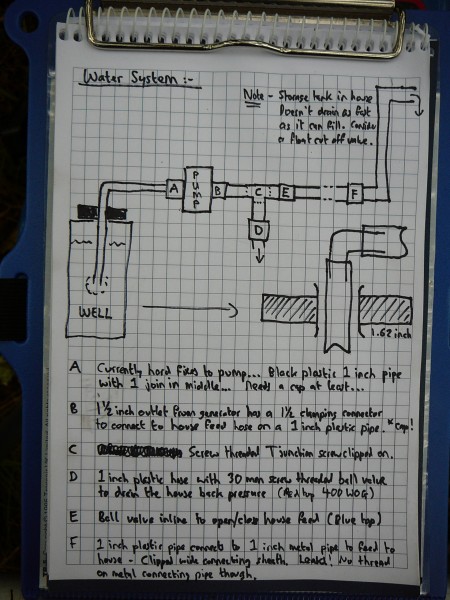 Water System :-
Note - Storage tank in house
Doesn't drain as fast
as it can fill. Consider
a float cut off valve.
PUMP
A
B
C
E
F
D
WELL
1.62 inch
A Currently hard fixes to pump... Black plastic 1 inch pipe
with 1 join in middle... Needs a cap at least...
B 1½ inch outlet from generator has a 1½ clamping connector
to connect to house feed hose on a 1 inch plastic pipe. *Cap!
C Screw threaded T junction screw clipped on.
D 1 inch plastic hose with 30 mm screw threaded ball valve
to drain the house back pressure (Red top 400 WOG)
E Ball valve inline to open/close house feed (Blue top)
F 1 inch plastic pipe connects to 1 inch metal pipe to feed to
house - Clipped wide connecting sheath. Leaks! No thread
on metal connecting pipe though.